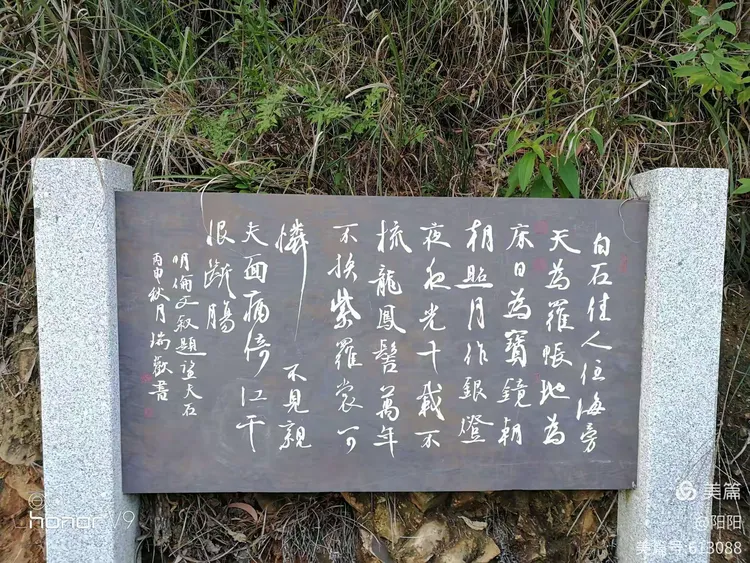 白石佳人住海旁
天為羅帳地為
床日為寶鏡朝
朝照月作銀燈
夜夜光十載不
梳龍鳳髻萬年
不換紫羅裳可
憐不見親
夫面痛倚江干
恨斷腸
明倫文叙題望夫石
丙申秋月瑞書
honor V9
美篇
@阳阳
美篇号:613088